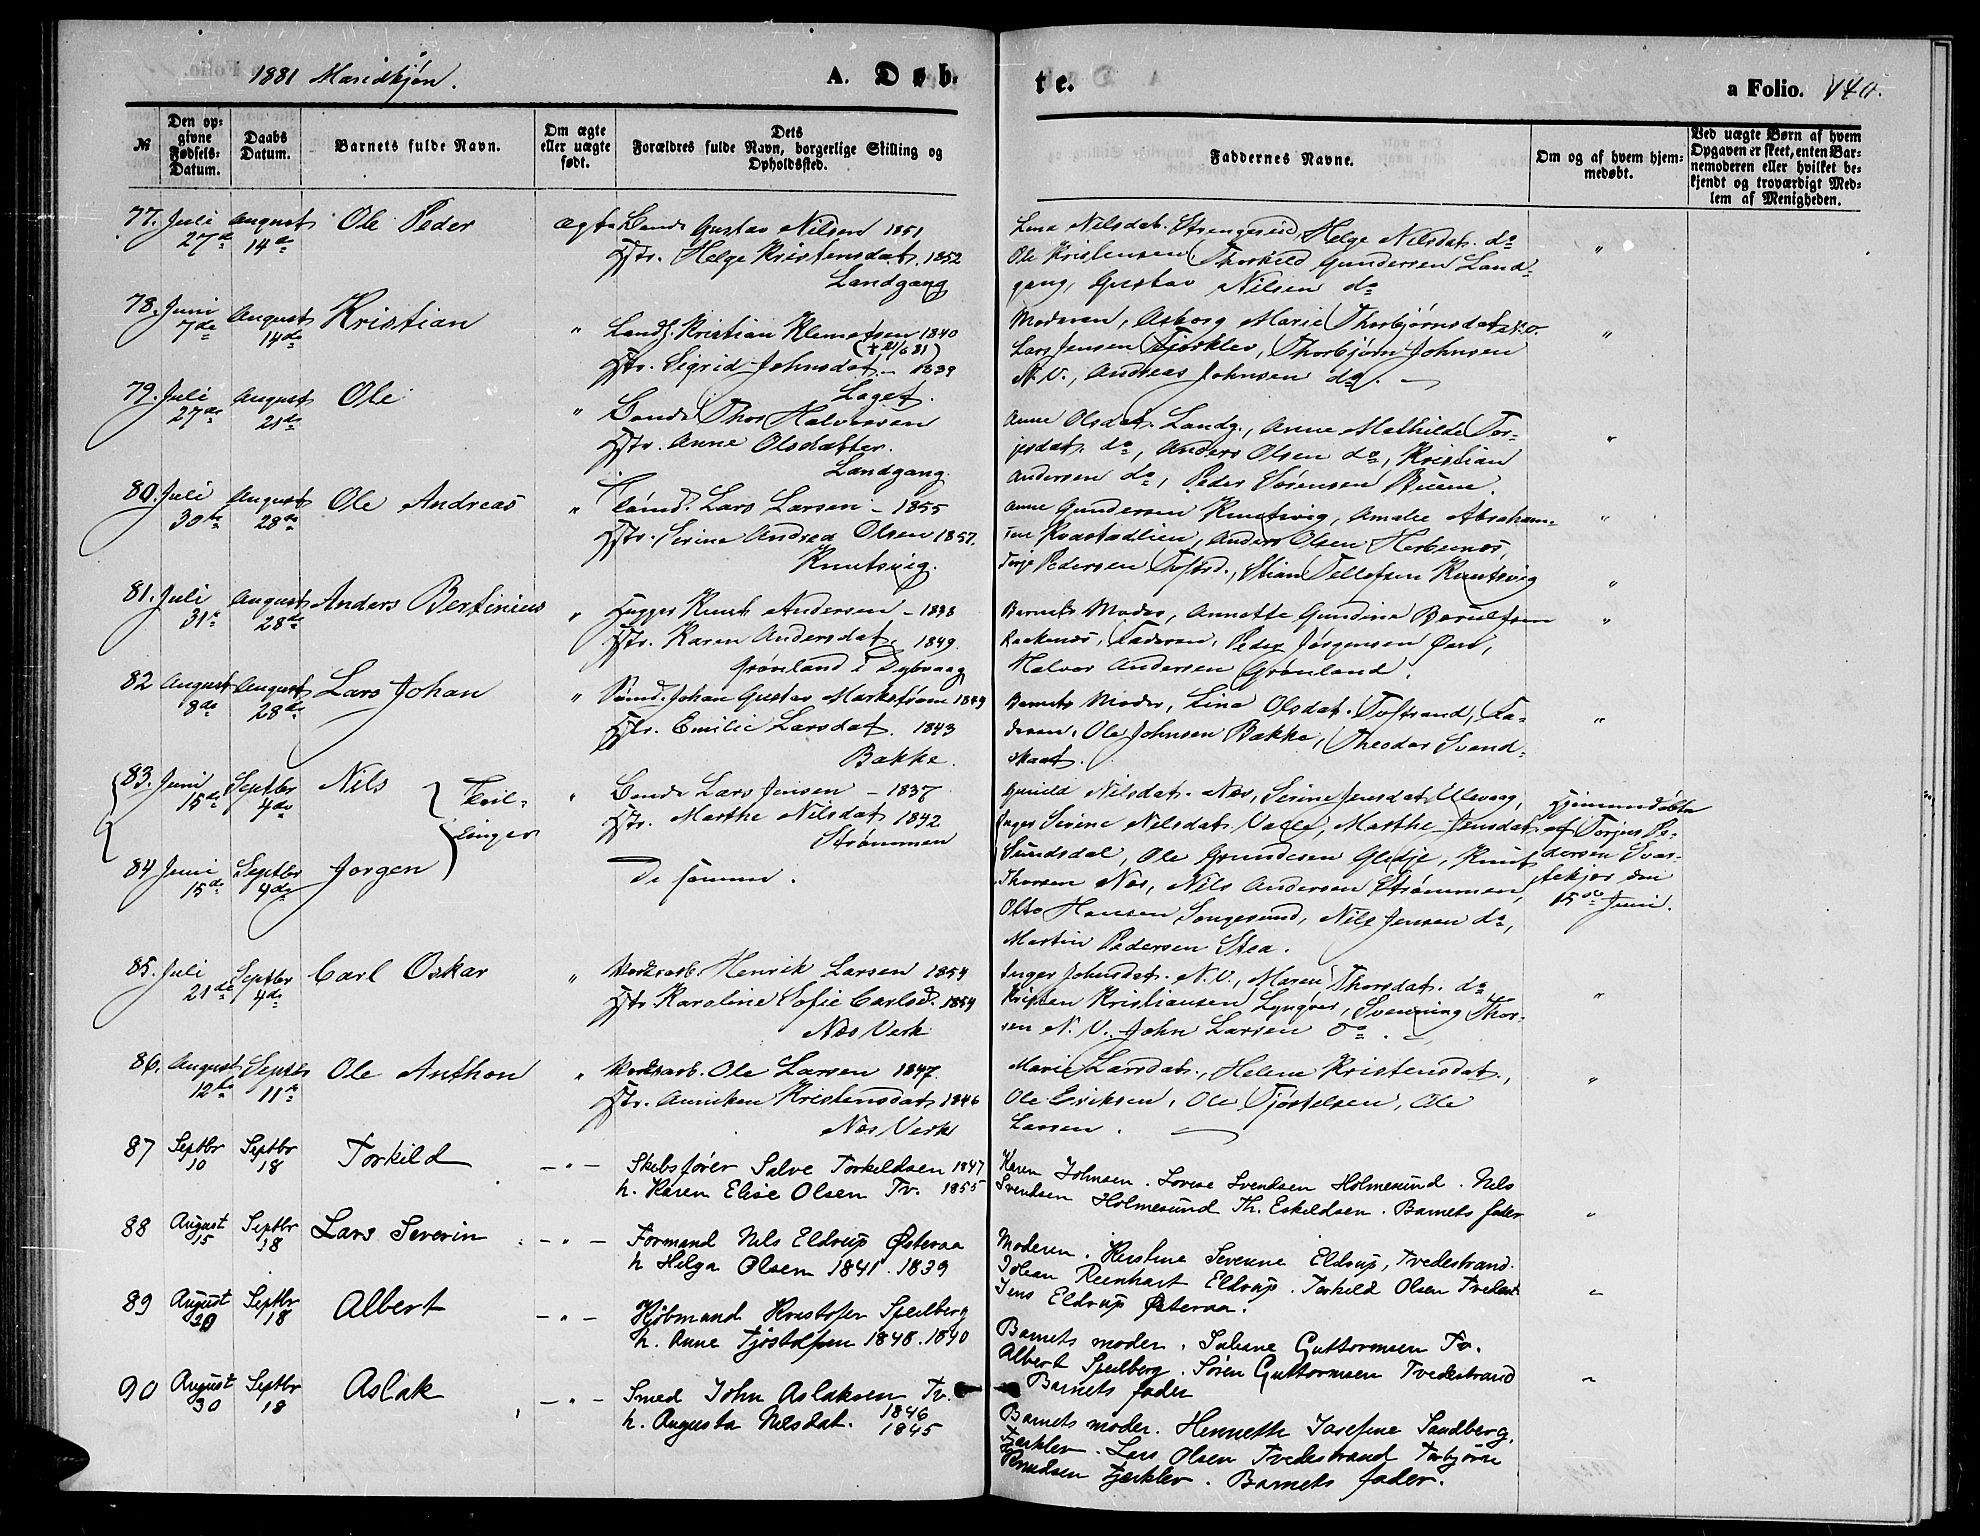 1881 Mandkjøn.
A. Døb-
te.
a Folio. 140.
№
Den op-
givne
Fødsels-
Datum.
Daabs
Datum.
Barnets fulde Navn.
Om ægte
eller uægte
født.
Dets
Forældres fulde Navn, borgerlige Stilling og
Opholdssted.
Faddernes Navne.
Om og af hvem hjem-
medøbt.
Ved uægte Børn af hvem
Opgaven er skeet, enten Bar-
nemoderen eller hvilket be-
kjendt og troværdigt Med-
lem af Menigheden.
77. Juli 27de August 14de Ole Peder ægte Bonde Gustav Nilsen 1851
Hstr. Helge Kristensdat. 1852
Landgang
Lena Nilsdat. Strengereid, Helge Nilsdat. do
Ole Kristensen, Thorkild Gundersen Land-
gang, Gustav Nilsen do
"
78. Juni 7de August 14de Kristian " Landh. Kristian Klemetsen 1840
(† 21/6 81)
Hstr. Sigrid Johnsdat. - 1839
Laget.
Moderen, Asborg Marie Thorbjørnsdat.
Lars Jensen Fjærklev, Thorbjørn Johnsen
N.V., Andreas Johnsen do.
"
79. Juli 27de August 21de Ole " Bonde Thor Halvorsen
Hstr. Anne Olsdatter.
Landgang.
Anne Olsdat. Landg., Anne Mathilde Tor-
jesdat. do, Anders Olsen do, Kristian
Andersen do, Peder Sørensen Buene.
"
80. Juli 30te August 28de Ole Andreas " Tømd. Lars Larsen - 1855
Hstr. Serine Andrea Olsen 1857.
Knutsvig.
Anne Gundersen Knutsvig, Amalie Abraham-
sen Kvastadlien, Anders Olsen Herbernæs,
Torje Pedersen Tofted., Stian Tellefsen Knutsvig
"
81. Juli 31te August 28de Anders Bertinius " Hugger Knut Andersen - 1838
Hstr. Karen Andersdat. 1849.
Grønland i Dybvaag
Barnets Moder, Annette Gundine Berulfsen
Laekenæs, Faderen, Peder Jørgensen
Halvor Andersen Grønland.
"
"
82 August 8de August 28de Lars Johan " Sømd. Johan Gustav Markstrøm 1849
Hstr. Emilie Larsdat. 1843
Bakke.
Barnets Moder, Lina Olsdat. Tofstrand, Fa-
deren, Ole Johnsen Bakke, Theodor Svend-
skaat.
"
83. Juni 15de Septbr 4de Nils Tvil-
linger " Bonde Lars Jensen - 1837
Hstr. Marthe Nilsdat 1842
Strømmen
Gunild Nilsdat. Næs, Serine Jensdat. Ulevaag,
Inger Serine Nilsdat. Valle, Marthe Jensdat.
Sundsdal, Ole Gundersen Gledje, Knut
Thorsen Næs, Nils Andersen Strømmen,
Otto Hansen Songesund, Nils Jensen do,
Martin Pedersen Stea.
Hjemmedøbte
af Torjus Pe-
dersen Svar-
tekjær den
15de Juni.
84 Juni 15de Septbr 4de Jørgen De samme.
85. Juli 21de Septbr 4de Carl Oskar " Værksarb. Henrik Larsen 1854
Hstr. Karoline Sofie Carlsd. 1854
Næs Verk
Inger Johnsdat. N.V., Maren Thorsdat. do
Kristen Kristiansen Lyngver, Svenning Thor-
sen N.V. John Larsen do.
"
86. August 12te Septbr 11te Ole Anthon " Værksarb. Ole Larsen 1847.
Hstr. Anniken Kristensdat. 1846
Næs Verk
Marie Larsdat., Helene Kristensdat.,
Ole Eriksen, Ole Tjøstelsen, Ole
Larsen.
"
87 Septbr 10 Septbr 18 Torkild - " - Skibsfører Salve Torkildsen 1847
h. Karen Elise Olsen Tv. 1855
Karen Johnsen. Lovise Svendsen Holmesund. Nils
Svendsen Holmesund Th. Eskildsen. Barnets fader
"
88 August 15 Septbr 18 Lars Severin - " - Formand Nils Eldrup Østeraa
h Helga Olsen 1841. 1839
Moderen. Kirstine Severine Eldrup, Tvedestrand.
Johan Reenhart Eldrup. Torkild Olsen Tvedest
Jens Eldrup Østeraa.
"
89 August 20 Septbr 18 Albert - " - Kjøbmand Kristofer Speilberg
h. Anne Tjøstolfsen 1848. 1840
Barnets moder. Juliane Guttormsen Tv.
Albert Speilberg. Søren Guttormsen Tvedestrand
Barnets fader
"
90 August 30 Septbr 18 Aslak - " - Smed John Aslaksen Tv.
1846
h. Augusta Nilsdat. 1845
Barnets moder. Hennette Josefine Sandberg.
Fjærklev. Lars Olsen Tvedestrand Torbjørn
Knudsen Fjærklev. Barnets fader.